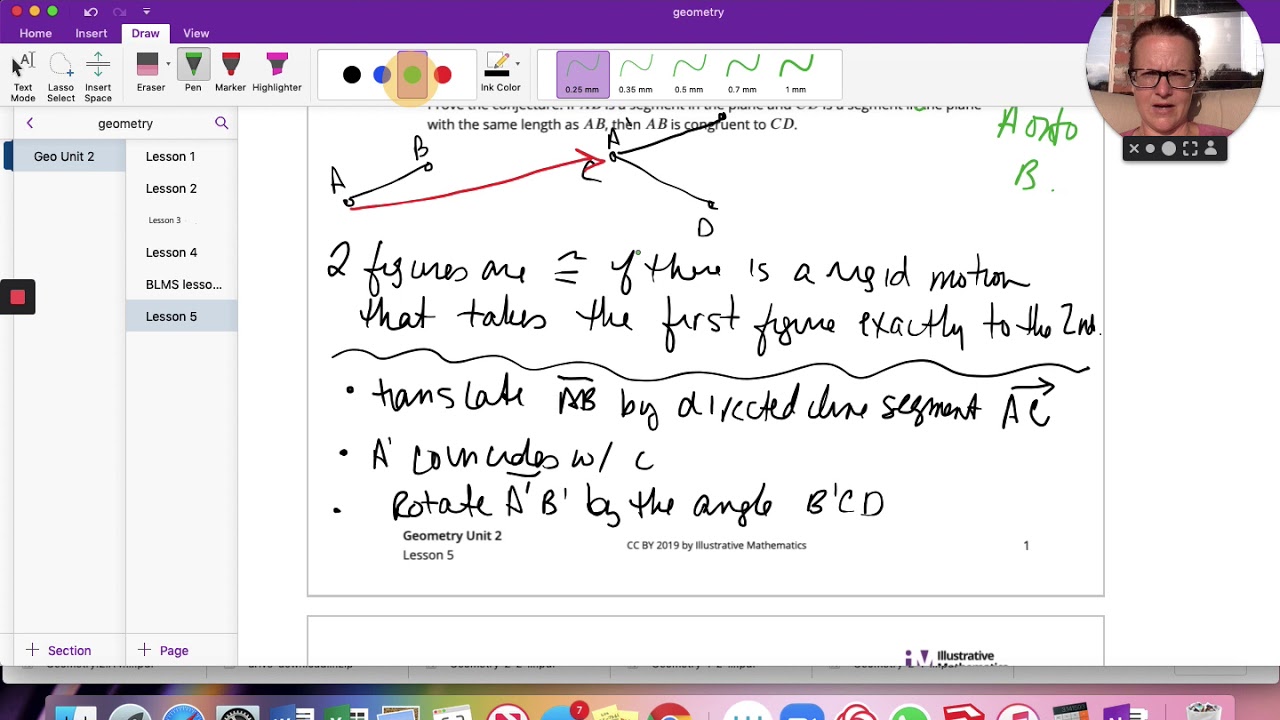 geometry
Home Insert Draw View
Text Mode
Lasso Select
Insert Space
Eraser
Pen
Marker
Highlighter
Ink Color
0.25 mm
0.35 mm
0.5 mm
0.7 mm
1 mm
geometry
Geo Unit 2
Lesson 1
Lesson 2
Lesson 3
Lesson 4
BLMS lesso...
Lesson 5
Prove the conjecture: If AB is a segment in the plane and CD is a segment in the plane
with the same length as AB, then AB is congruent to CD.
A onto
B.
A
B
A'
C
D
2 figures are ≅ if there is a rigid motion
that takes the first figure exactly to the 2nd.
• translate AB by directed line segment AC
• A' coincides w/ C
• Rotate A'B' by the angle B'CD
Geometry Unit 2
Lesson 5
CC BY 2019 by Illustrative Mathematics
1
Illustrative
Mathematics
+ Section
+ Page
7